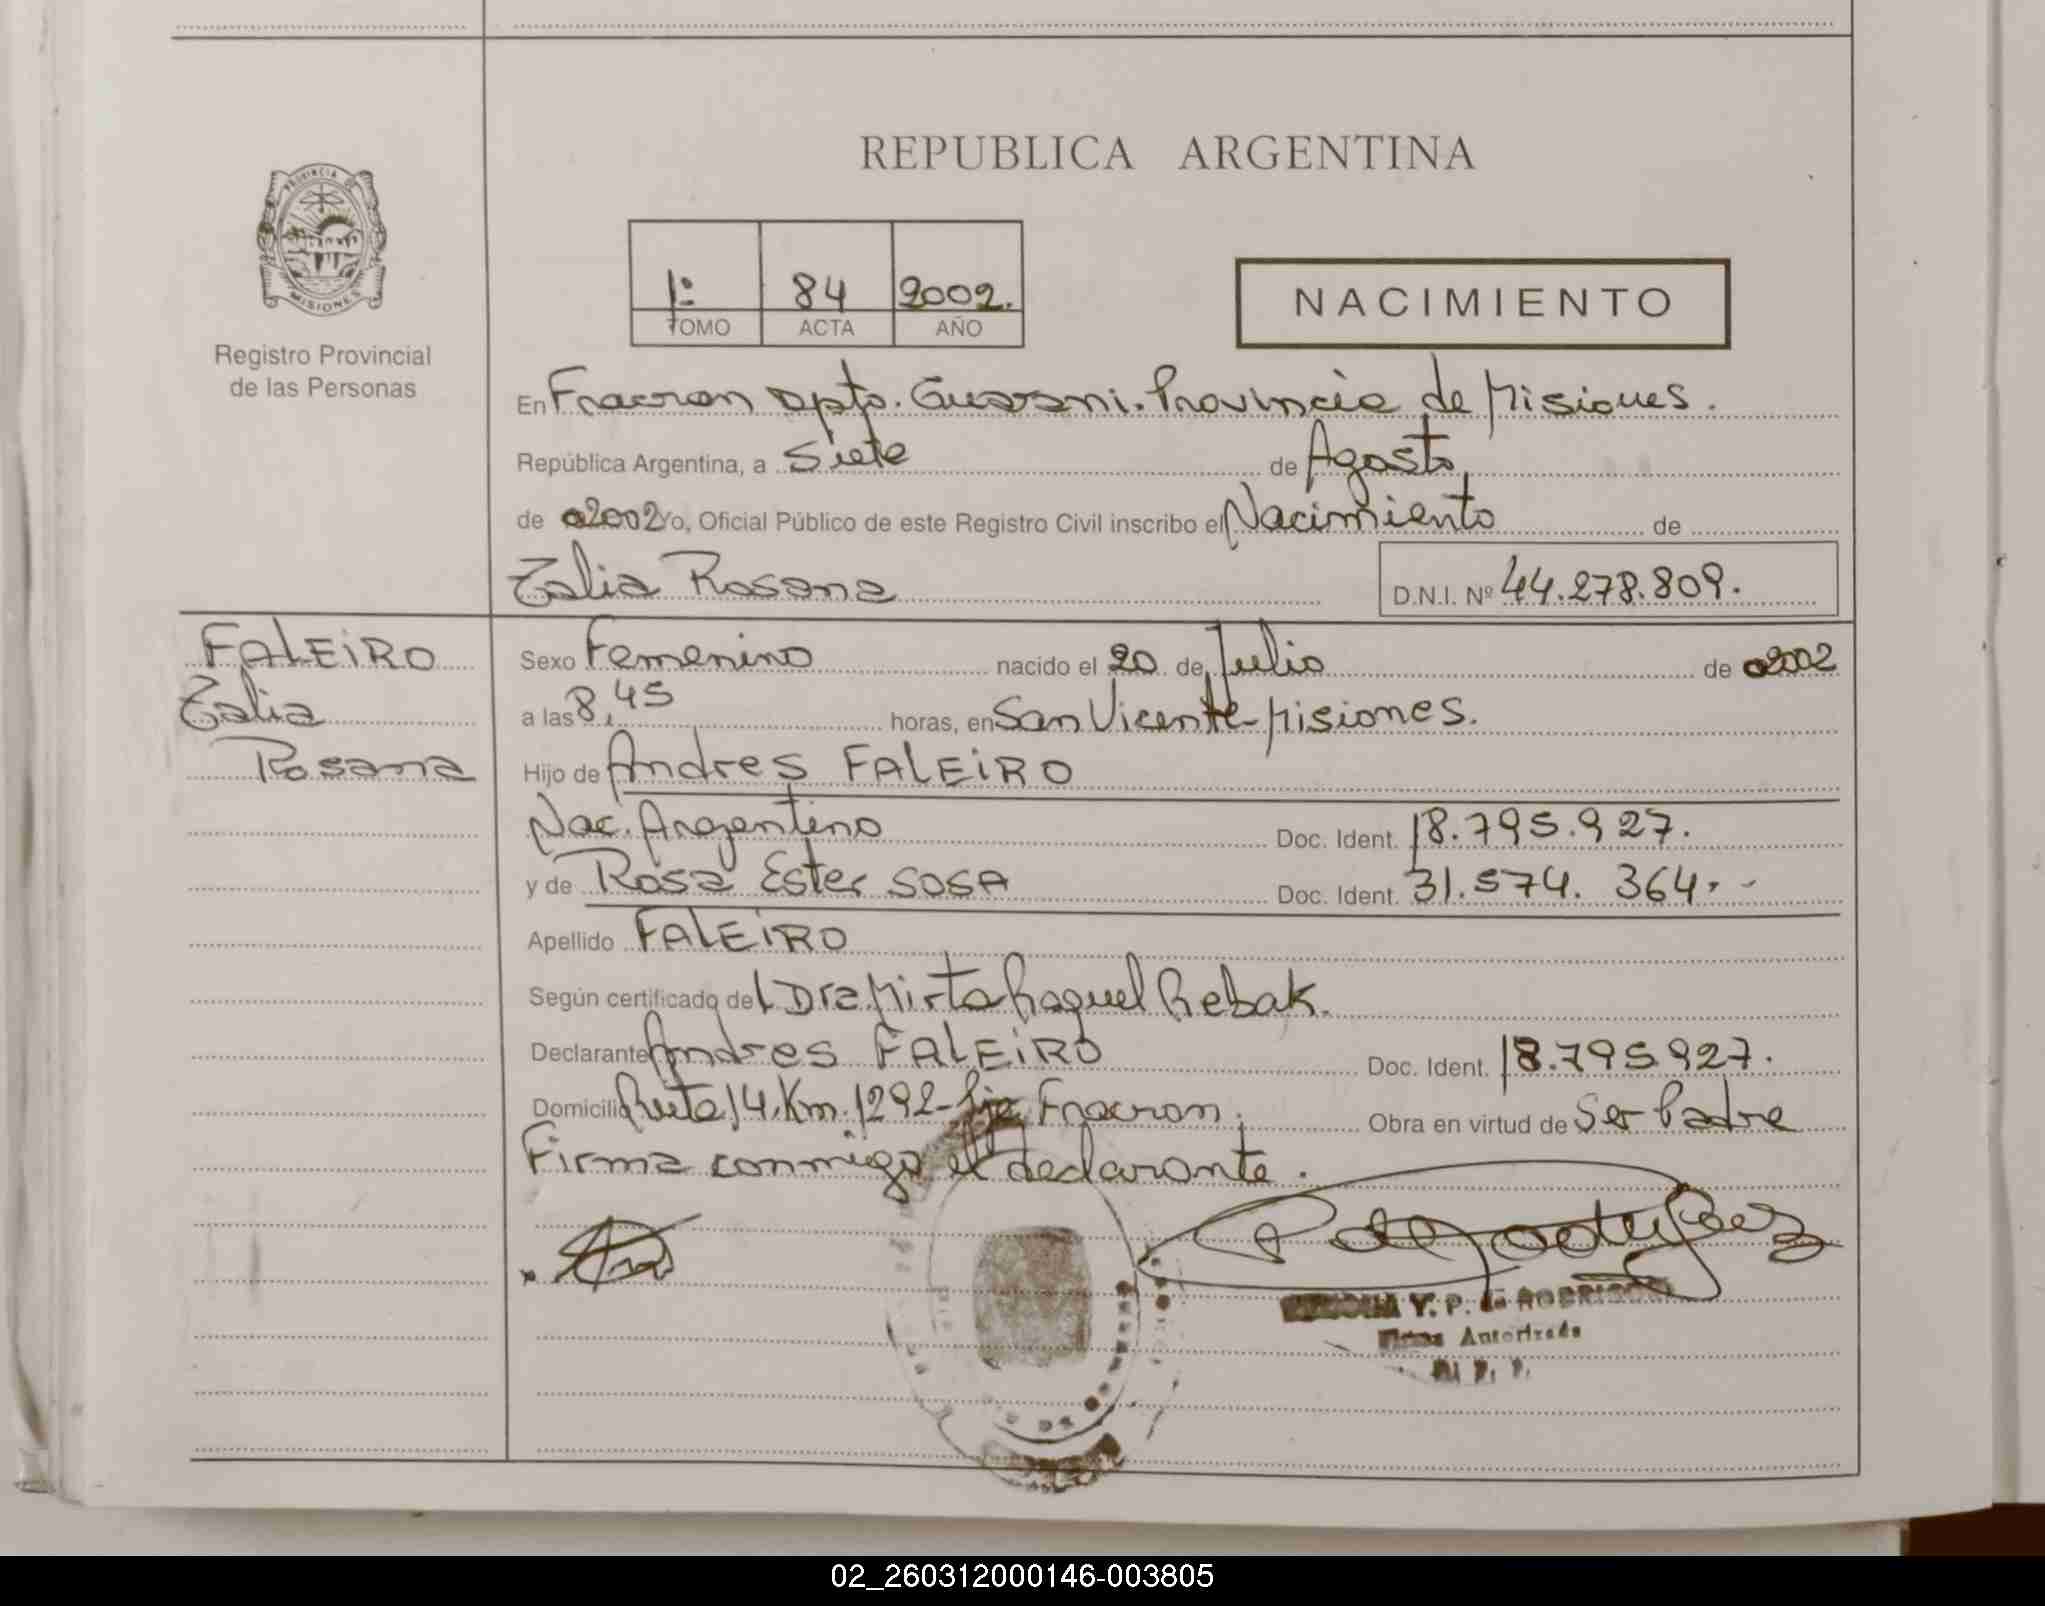 REPUBLICA ARGENTINA
PROVINCIA DE
MISIONES
Registro Provincial
de las Personas
1º 84 2002.
TOMO ACTA AÑO
NACIMIENTO
En Fracran Dpto. Guarani. Provincia de Misiones.
República Argentina, a Siete de Agosto
de 2002 Yo, Oficial Público de este Registro Civil inscribo el Nacimiento de
Talia Rosana D.N.I. Nº 44.278.809.
FALEIRO
Talia
Rosana
Sexo Femenino nacido el 20 de Julio de 2002
a las 8,45 horas, en San Vicente-Misiones.
Hijo de Andres FALEIRO
Nac. Argentino Doc. Ident. 18.795.927.
y de Rosa Ester SOSA Doc. Ident. 31.574.364.-
Apellido FALEIRO
Según certificado de l Dra Mirta Raquel Rebak.
Declarante Andres FALEIRO Doc. Ident. 18.795927.
Domicilio Ruta 14. Km. 1292- Fracran. Obra en virtud de Ser Padre
Firma conmigo el declarante.
Y. P. de RODRIGUEZ
Firma Autorizada
02_260312000146-003805